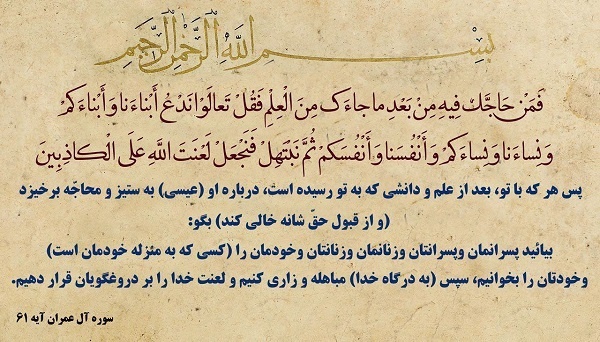 بِسْمِ اللَّهِ الرَّحْمٰنِ الرَّحِيمِ
فَمَنْ حَاجَّكَ فِيهِ مِنْ بَعْدِ ما جاءَكَ مِنَ الْعِلْمِ فَقُلْ تَعالَوْا نَدْعُ أَبْناءَنا وَ أَبْناءَكُمْ
وَ نِساءَنا وَ نِساءَكُمْ وَ أَنْفُسَنا وَ أَنْفُسَكُمْ ثُمَّ نَبْتَهِلْ فَنَجْعَلْ لَعْنَتَ اللَّهِ عَلَى الْكاذِبِينَ
پس هر که با تو، بعد از علم و دانشی که به تو رسیده است، درباره او (عیسی) به ستیز و محاجّه برخیزد
(و از قبول حقّ شانه خالی کند) بگو:
بیائید پسرانمان وپسرانتان وزنانمان وزنانتان وخودمان را (کسی که به منزله خودمان است)
وخودتان را بخوانیم، سپس (به درگاه خدا) مباهله و زاری کنیم و لعنت خدا را بر دروغگویان قرار دهیم.
سوره آل عمران آیه ۶۱